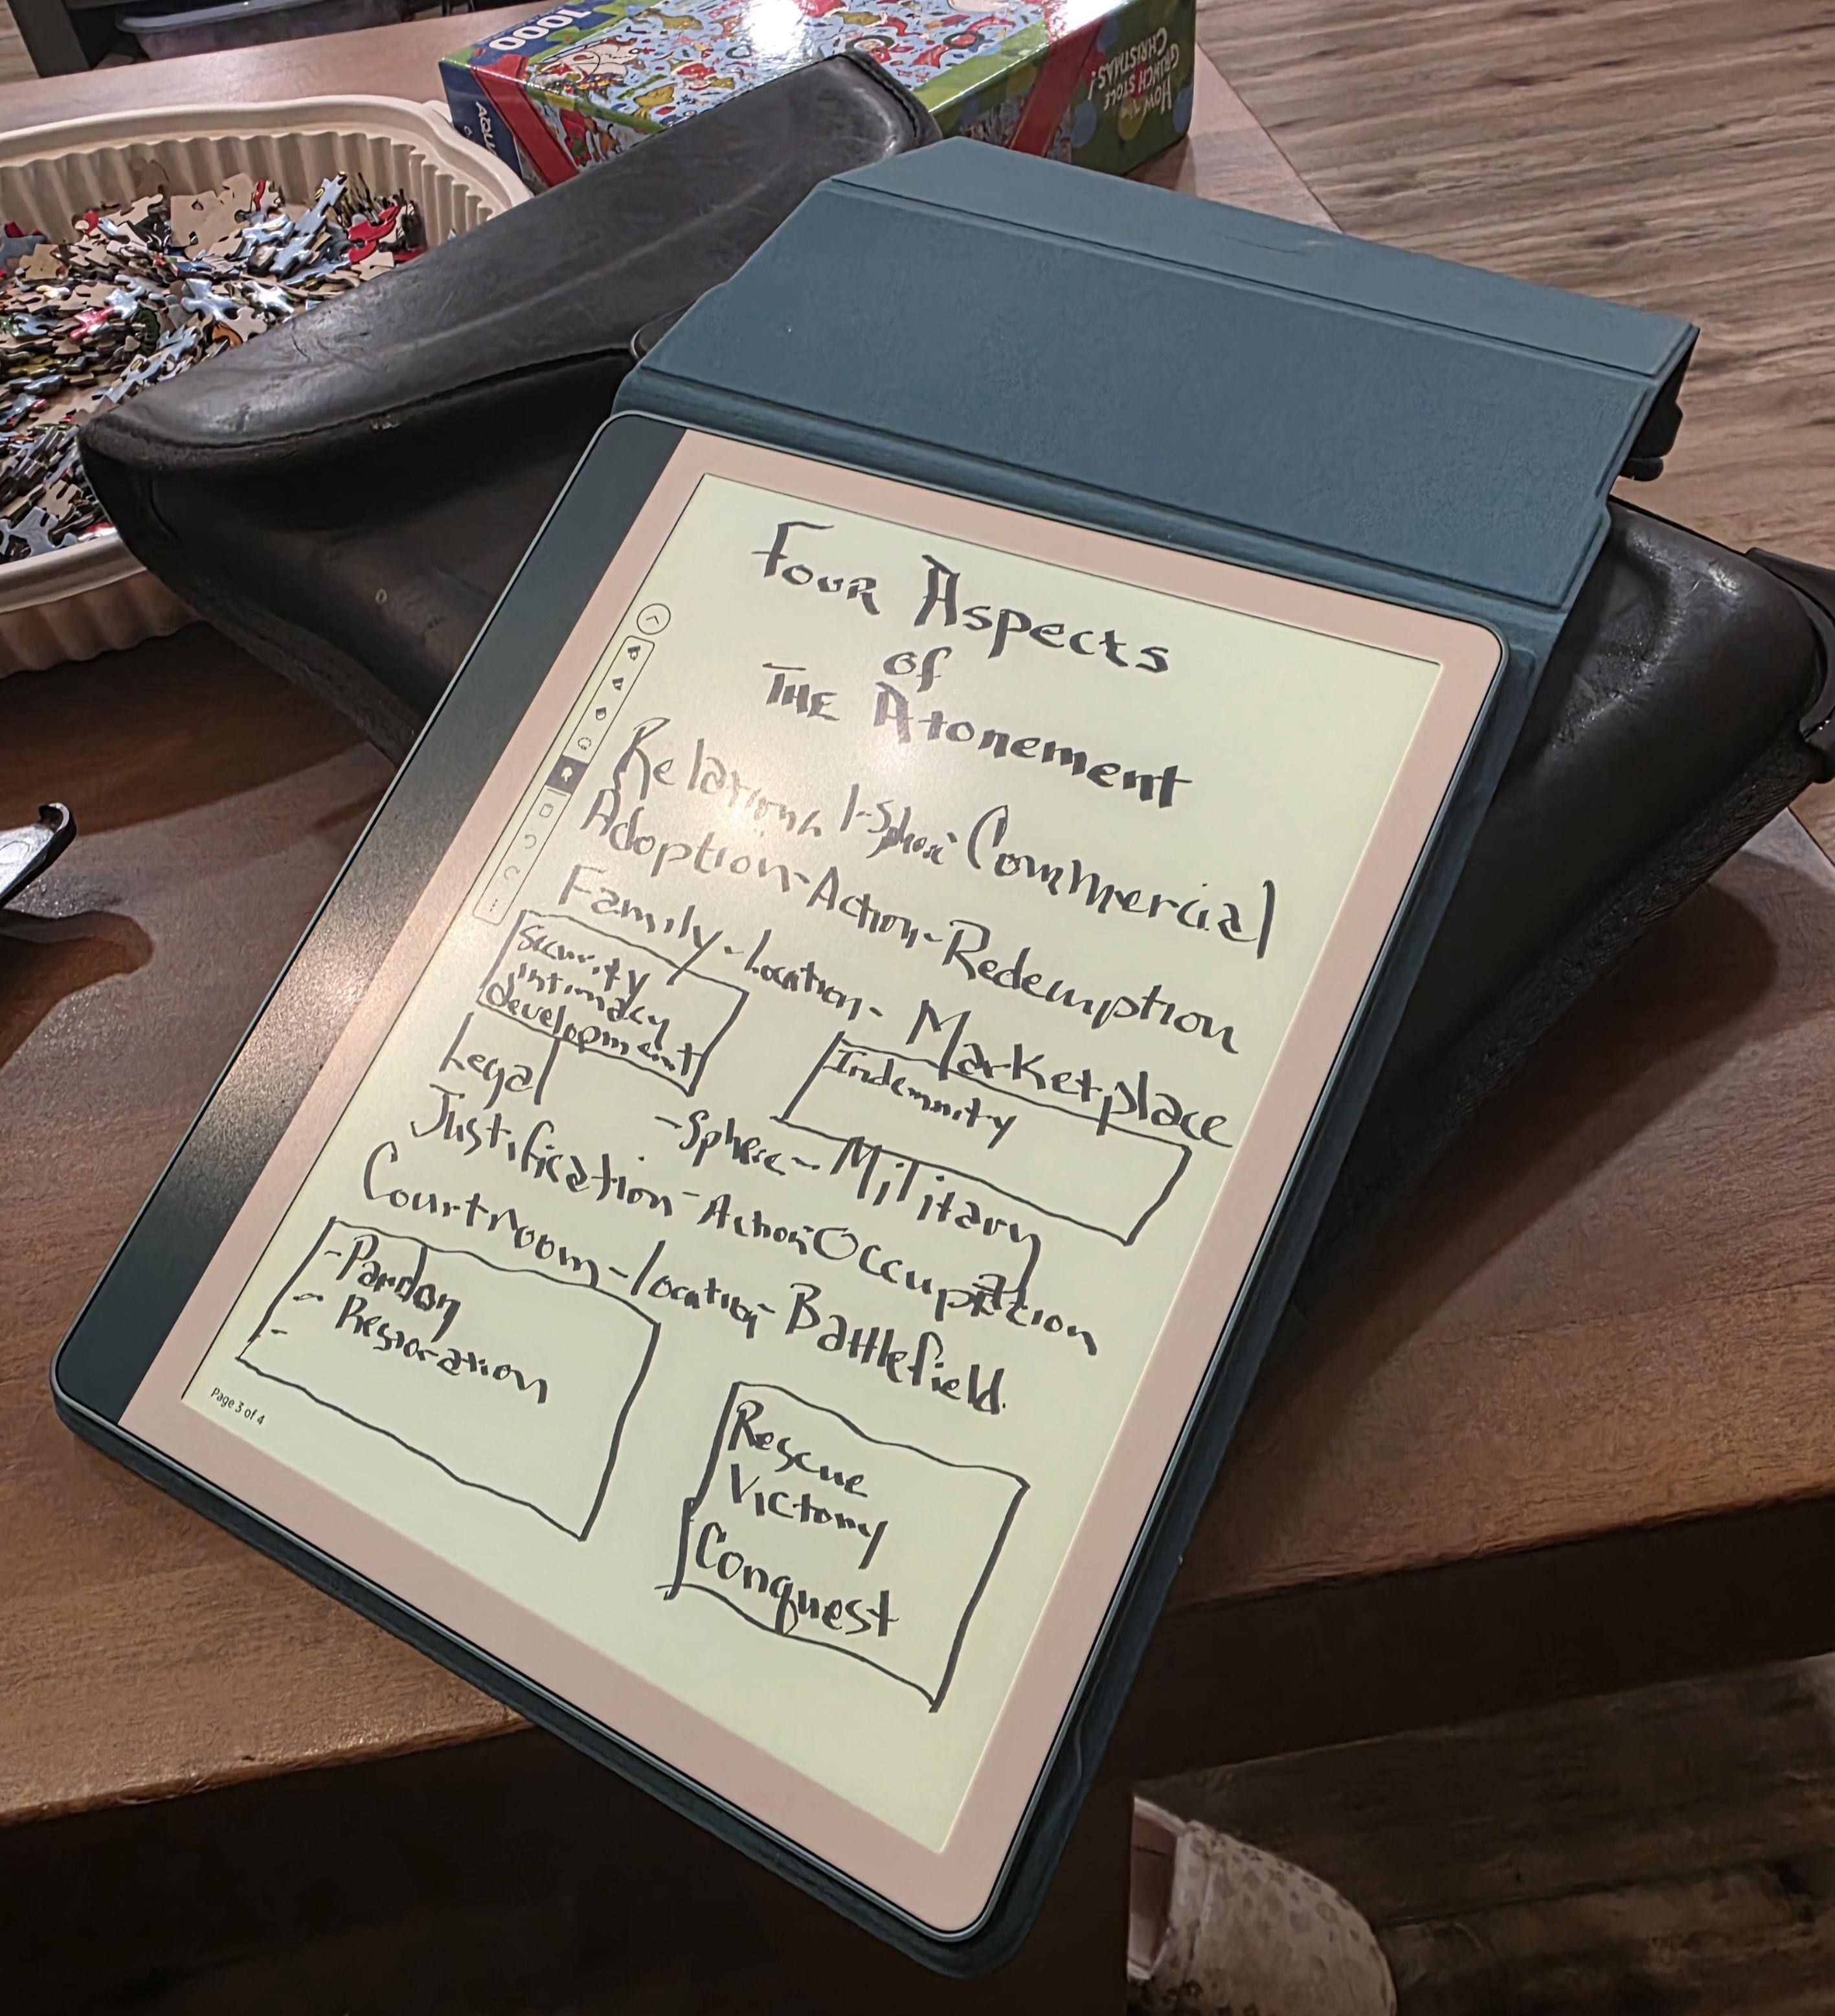 1000
HOW THE GRINCH STOLE CHRISTMAS!
Four Aspects
of
THE Atonement
Relational-Sphere-Commercial
Adoption-Action-Redemption
Family-Location-Marketplace
Security
intimacy
development
Indemnity
Legal -Sphere-Military
Justification-Action-Occupation
Courtroom-location-Battlefield.
-Pardon
- Resioration
-
Rescue
Victory
Conquest
Page 3 of 4